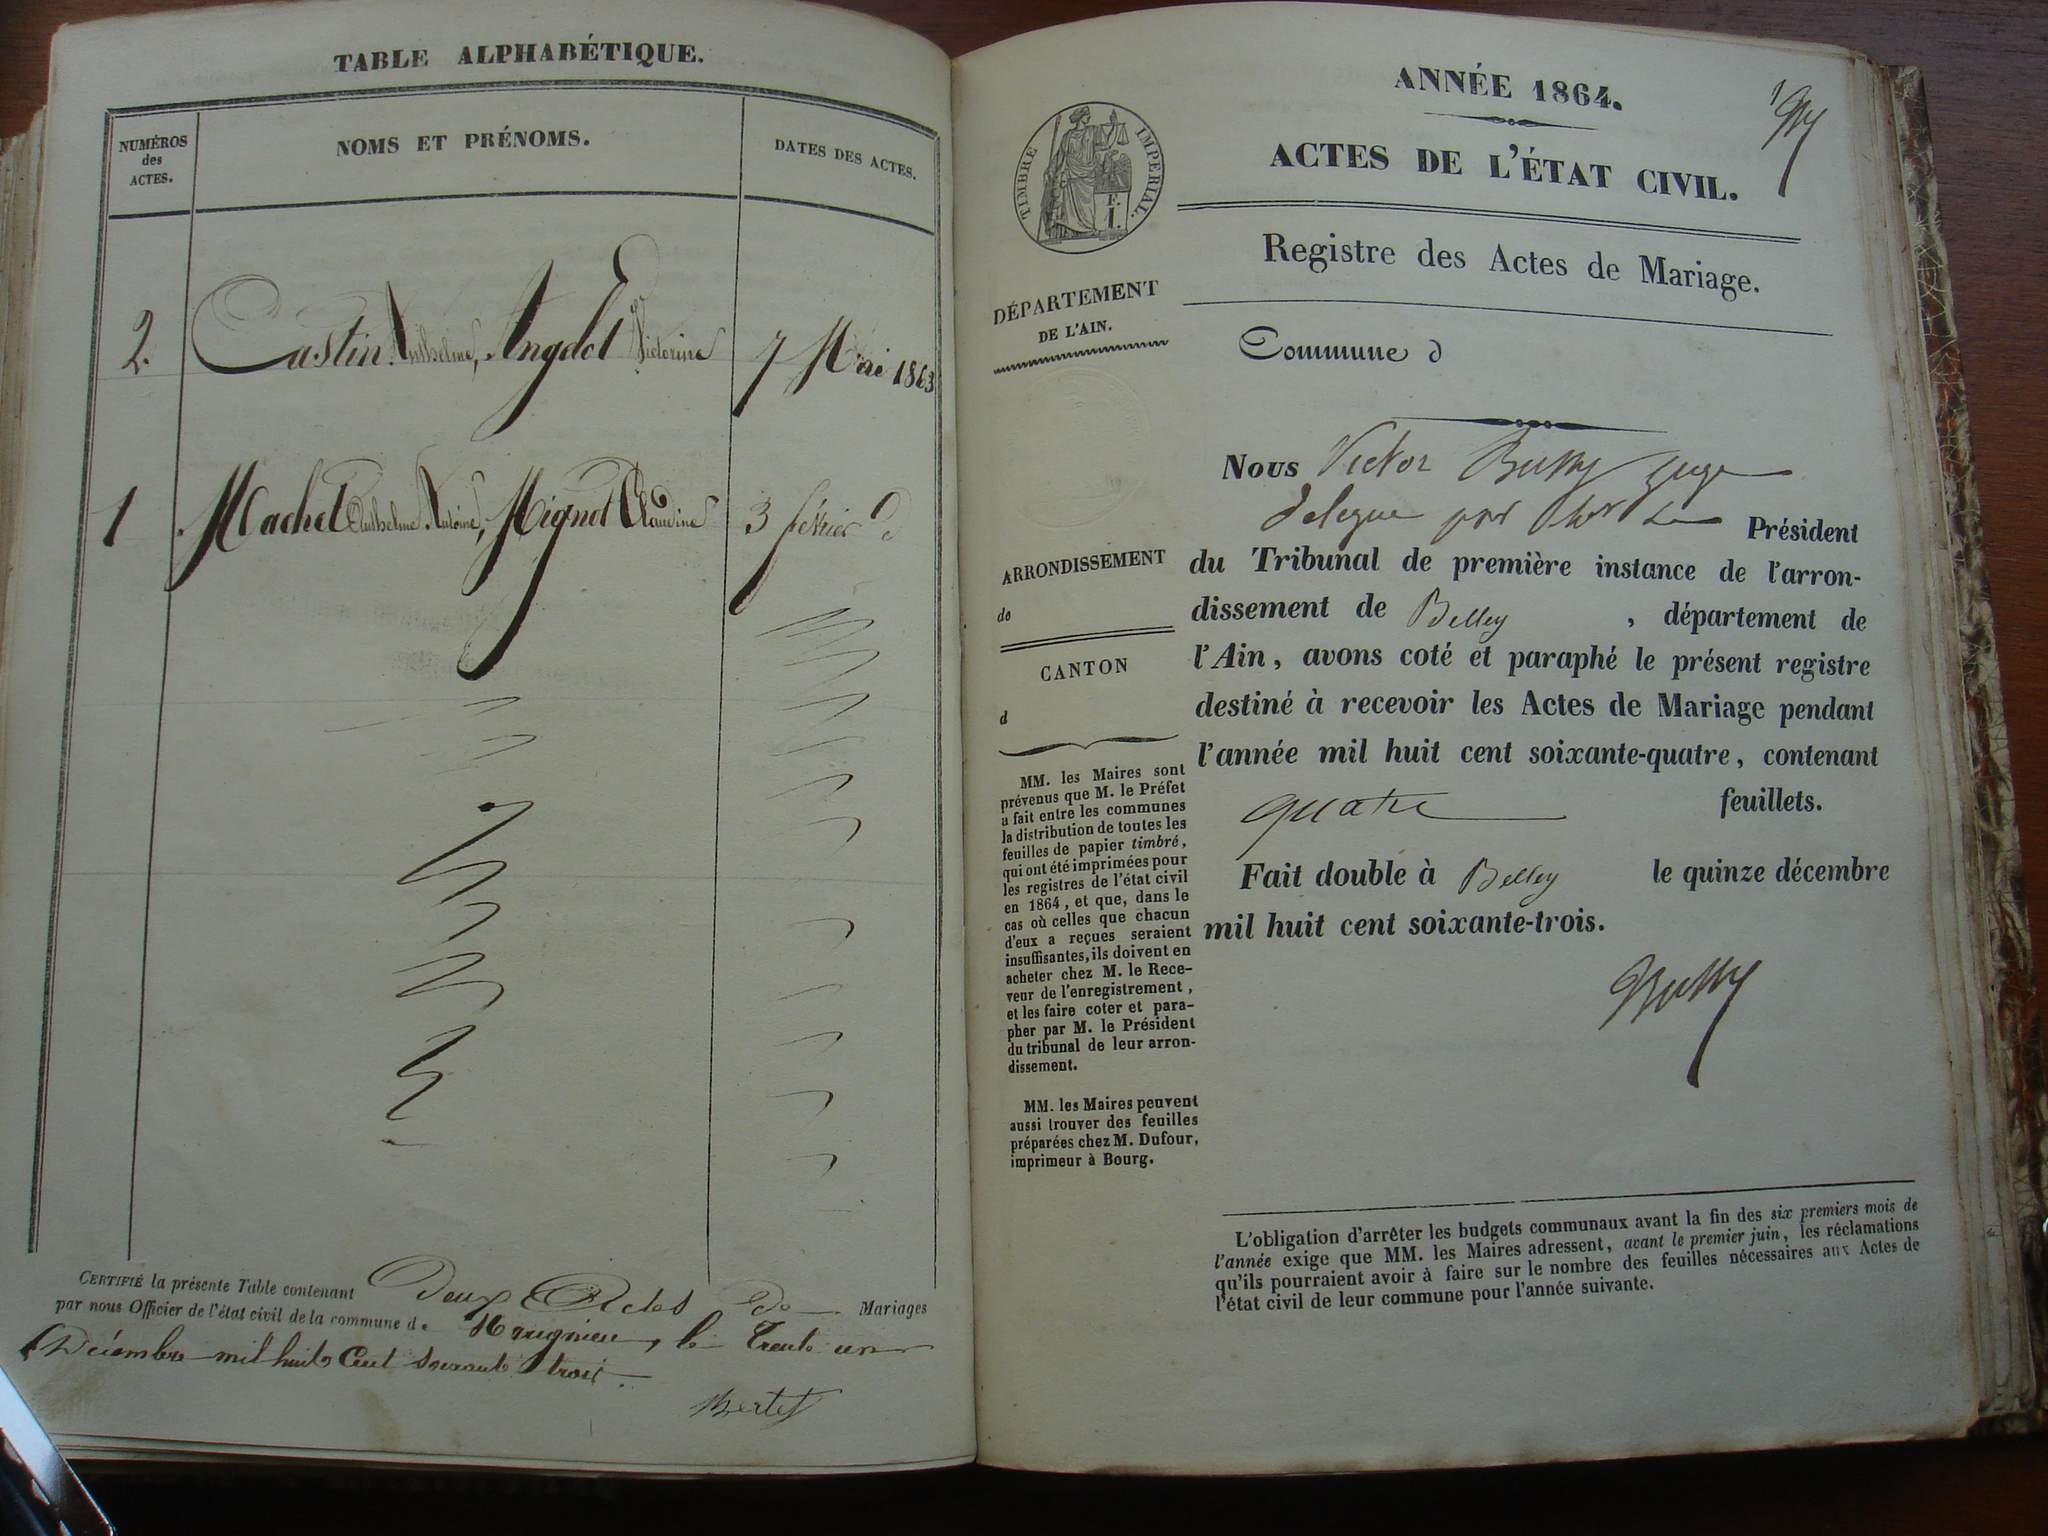 TABLE ALPHABÉTIQUE.
NUMÉROS
des
ACTES.
NOMS ET PRÉNOMS.
DATES DES ACTES.
2. Castin Anthelme, Angelot Victorine 7 Mai 1863
1 Machet Anthelme Antoine, Mignot Claudine 3 février d
CERTIFIÉ la présente Table contenant Deux Actes de Mariages
par nous Officier de l'état civil de la commune de Maignieu, le Trente un
Décembre mil huit Cent soixante trois.
Bertet
ANNÉE 1864.
1
ACTES DE L'ÉTAT CIVIL.
Registre des Actes de Mariage.
TIMBRE IMPÉRIAL.
DÉPARTEMENT
DE L'AIN.
Commune d
ARRONDISSEMENT
de
CANTON
d
MM. les Maires sont
prévenus que M. le Préfet
a fait entre les communes
la distribution de toutes les
feuilles de papier timbré,
qui ont été imprimées pour
les registres de l'état civil
en 1864, et que, dans le
cas où celles que chacun
d'eux a reçues seraient
insuffisantes, ils doivent en
acheter chez M. le Rece-
veur de l'enregistrement,
et les faire coter et para-
pher par M. le Président
du tribunal de leur arron-
dissement.
MM. les Maires peuvent
aussi trouver des feuilles
préparées chez M. Dufour,
imprimeur à Bourg.
Nous Victor Bussy juge
délégué par Mr Le Président
du Tribunal de première instance de l'arron-
dissement de Belley , département de
l'Ain, avons coté et paraphé le présent registre
destiné à recevoir les Actes de Mariage pendant
l'année mil huit cent soixante-quatre, contenant
quatre feuillets.
Fait double à Belley le quinze décembre
mil huit cent soixante-trois.
Bussy
L'obligation d'arrêter les budgets communaux avant la fin des six premiers mois de
l'année exige que MM. les Maires adressent, avant le premier juin, les réclamations
qu'ils pourraient avoir à faire sur le nombre des feuilles nécessaires aux Actes de
l'état civil de leur commune pour l'année suivante.